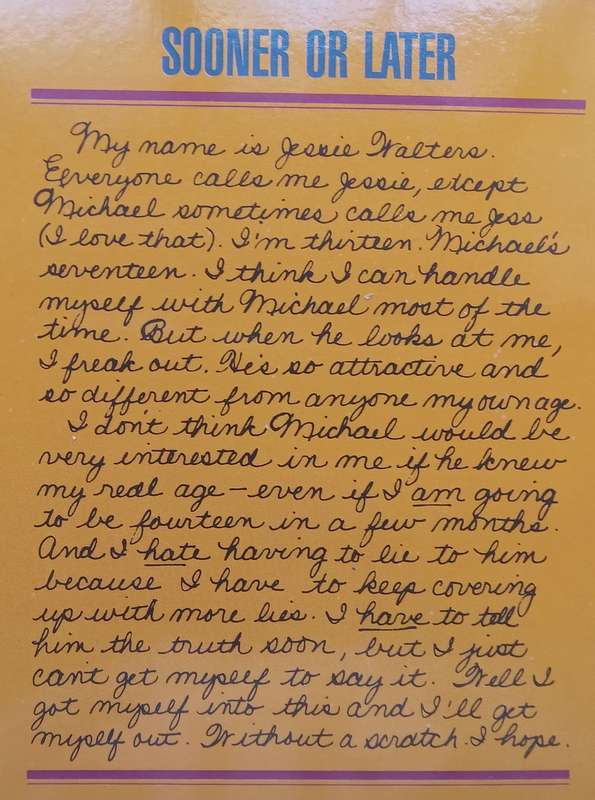 SOONER OR LATER
My name is Jessie Walters.
Everyone calls me Jessie, except
Michael sometimes calls me Jess
(I love that). I'm thirteen. Michael's
seventeen. I think I can handle
myself with Michael most of the
time. But when he looks at me,
I freak out. He's so attractive and
so different from anyone my own age.
I don't think Michael would be
very interested in me if he knew
my real age — even if I am going
to be fourteen in a few months.
And I hate having to lie to him
because I have to keep covering
up with more lies. I have to tell
him the truth soon, but I just
can't get myself to say it. Well I
got myself into this and I'll get
myself out. Without a scratch. I hope.